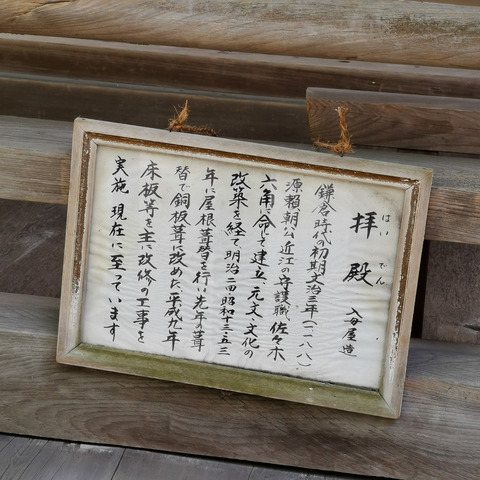 拝殿 入母屋造
はいでん
鎌倉時代の初期文治三年(一一八八)
源頼朝公近江の守護職佐々木
六角に命じて建立、元文、文化の
改築を経て、明治二四昭和十三・五三
年に屋根葺替を行い先年の葺
替で銅板葺に改めた、平成九年
床板等を主に改修の工事を
実施 現在に至っています